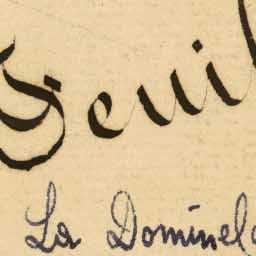 Feuil
La Dominela